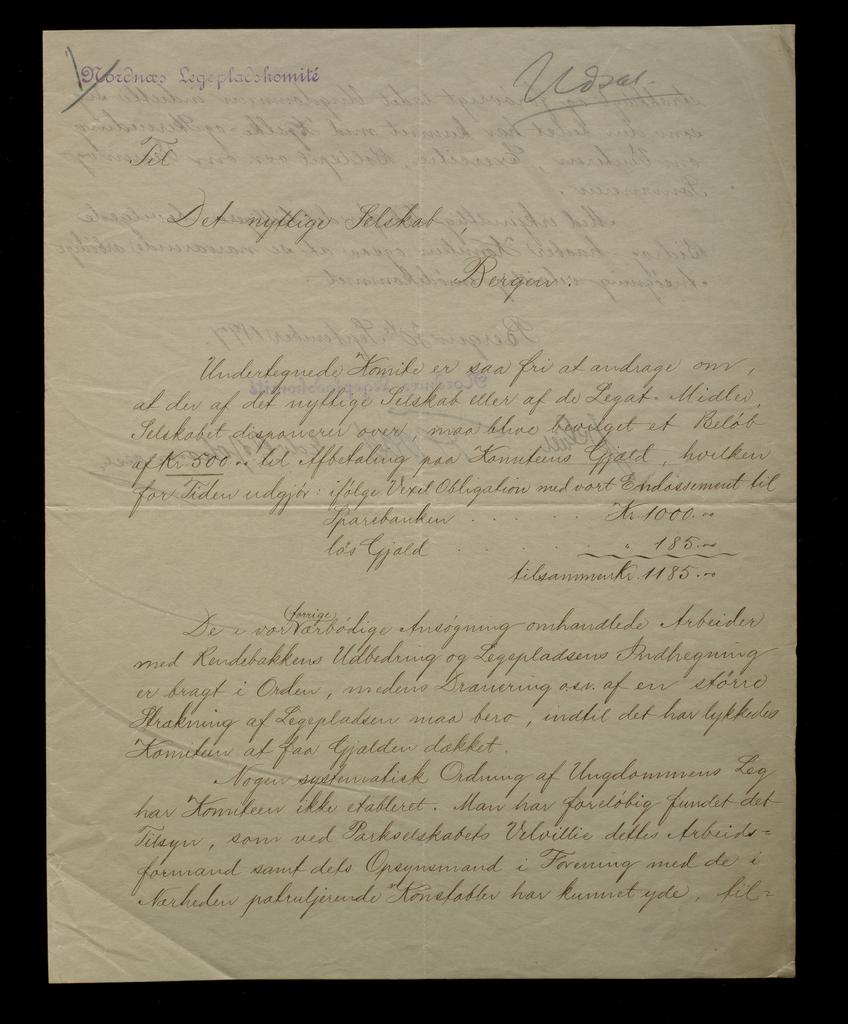 Nordnæs Legepladskomité
Udsat.
Til
Det nyttige Selskab,
Bergen.
Undertegnede Komite er saa fri at andrage om,
at der af det nyttige Selskab eller af de Legat-Midler,
Selskabet disponerer over, maa blive bevilget et Beløb
af Kr. 500.- til Afbetaling paa Komiteens Gjæld, hvilken
for Tiden udgjør: ifølge Vexel Obligation med vort Endossement til
Sparebanken . . . . . Kr. 1000.-
løs Gjæld . . . . . " 185.-
tilsammen Kr. 1185.-
forrige
De i vor Værbødige Ansøgning omhandlede Arbeider
med Rendebakkens Udbedring og Legepladsens Indhegning
er bragt i Orden, medens Drænering osv. af en større
Strækning af Legepladsen maa bero, indtil det har lykkedes
Komiteen at faa Gjælden dækket.
Nogen systematisk Ordning af Ungdommens Leg
har Komiteen ikke etableret. Man har foreløbig fundet det
Tilsyn, som ved Parkselskabets Velvillie dettes Arbeids=
formand samt dets Opsynsmand i Forening med de i
Nærheden patruljerende Konstabler har kunnet yde, til=